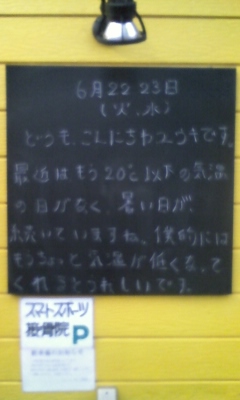 6月22 23日
(火、水)
どうも、こんにちわユウキです。
最近はもう20℃以下の気温
の日がなく、暑い日が、
続いていますね。僕的には
もうちょっと気温が低くなって
くれるとうれしいです。
スマートスポーツ
接骨院 P